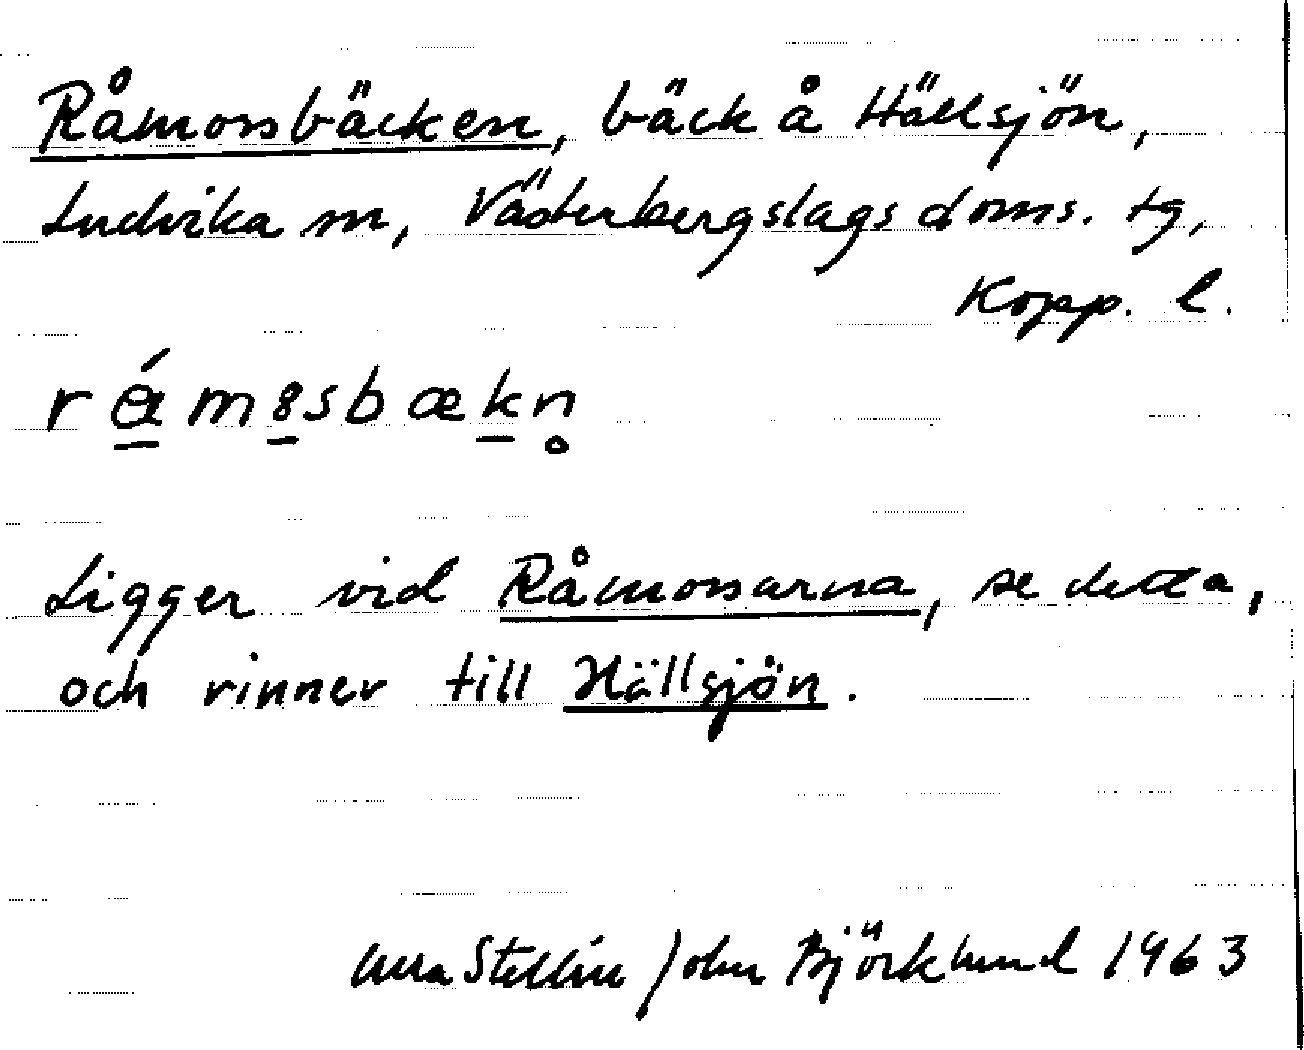 Råmossbäcken, bäck å Hällsjön,
Ludvika sn, Västerbergslags doms. tg,
Kopp. l.
råmosbækn
Ligger vid Råmossarna, se detta,
och rinner till Hällsjön.
Stellin John Björklund 1963